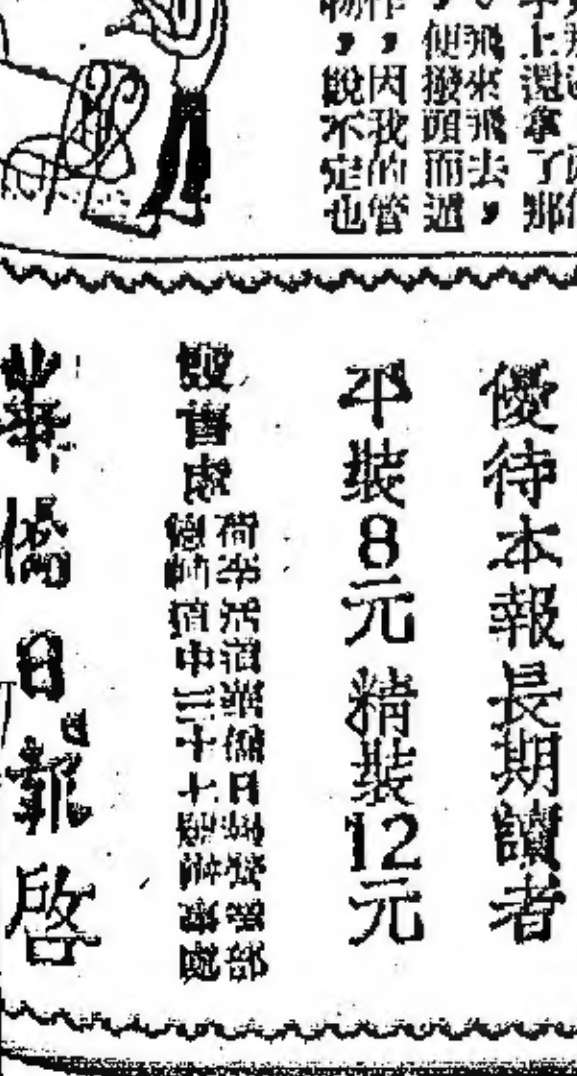 上還拿了那
飛來飛去，
，便搬頭而遁
作，因我的管
物，說不定也
優待本報長期讀者
平裝8元 精裝12元
發書處
荷李活道華僑日報營業部
德輔道中三十七號辦事處
華僑日報啟